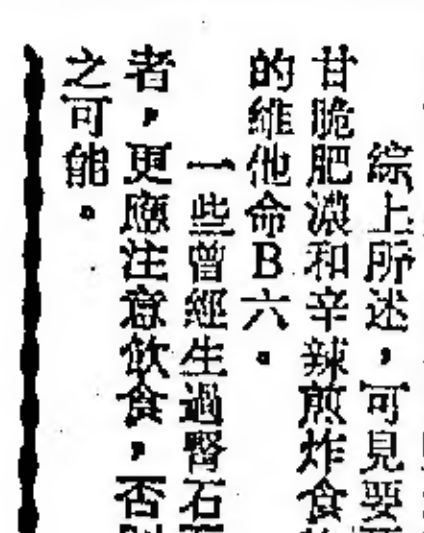 綜上所述，可見要
甘脆肥濃和辛辣煎炸食
的維他命B六。
一些曾經生過腎石
者，更應注意飲食，否則
之可能。